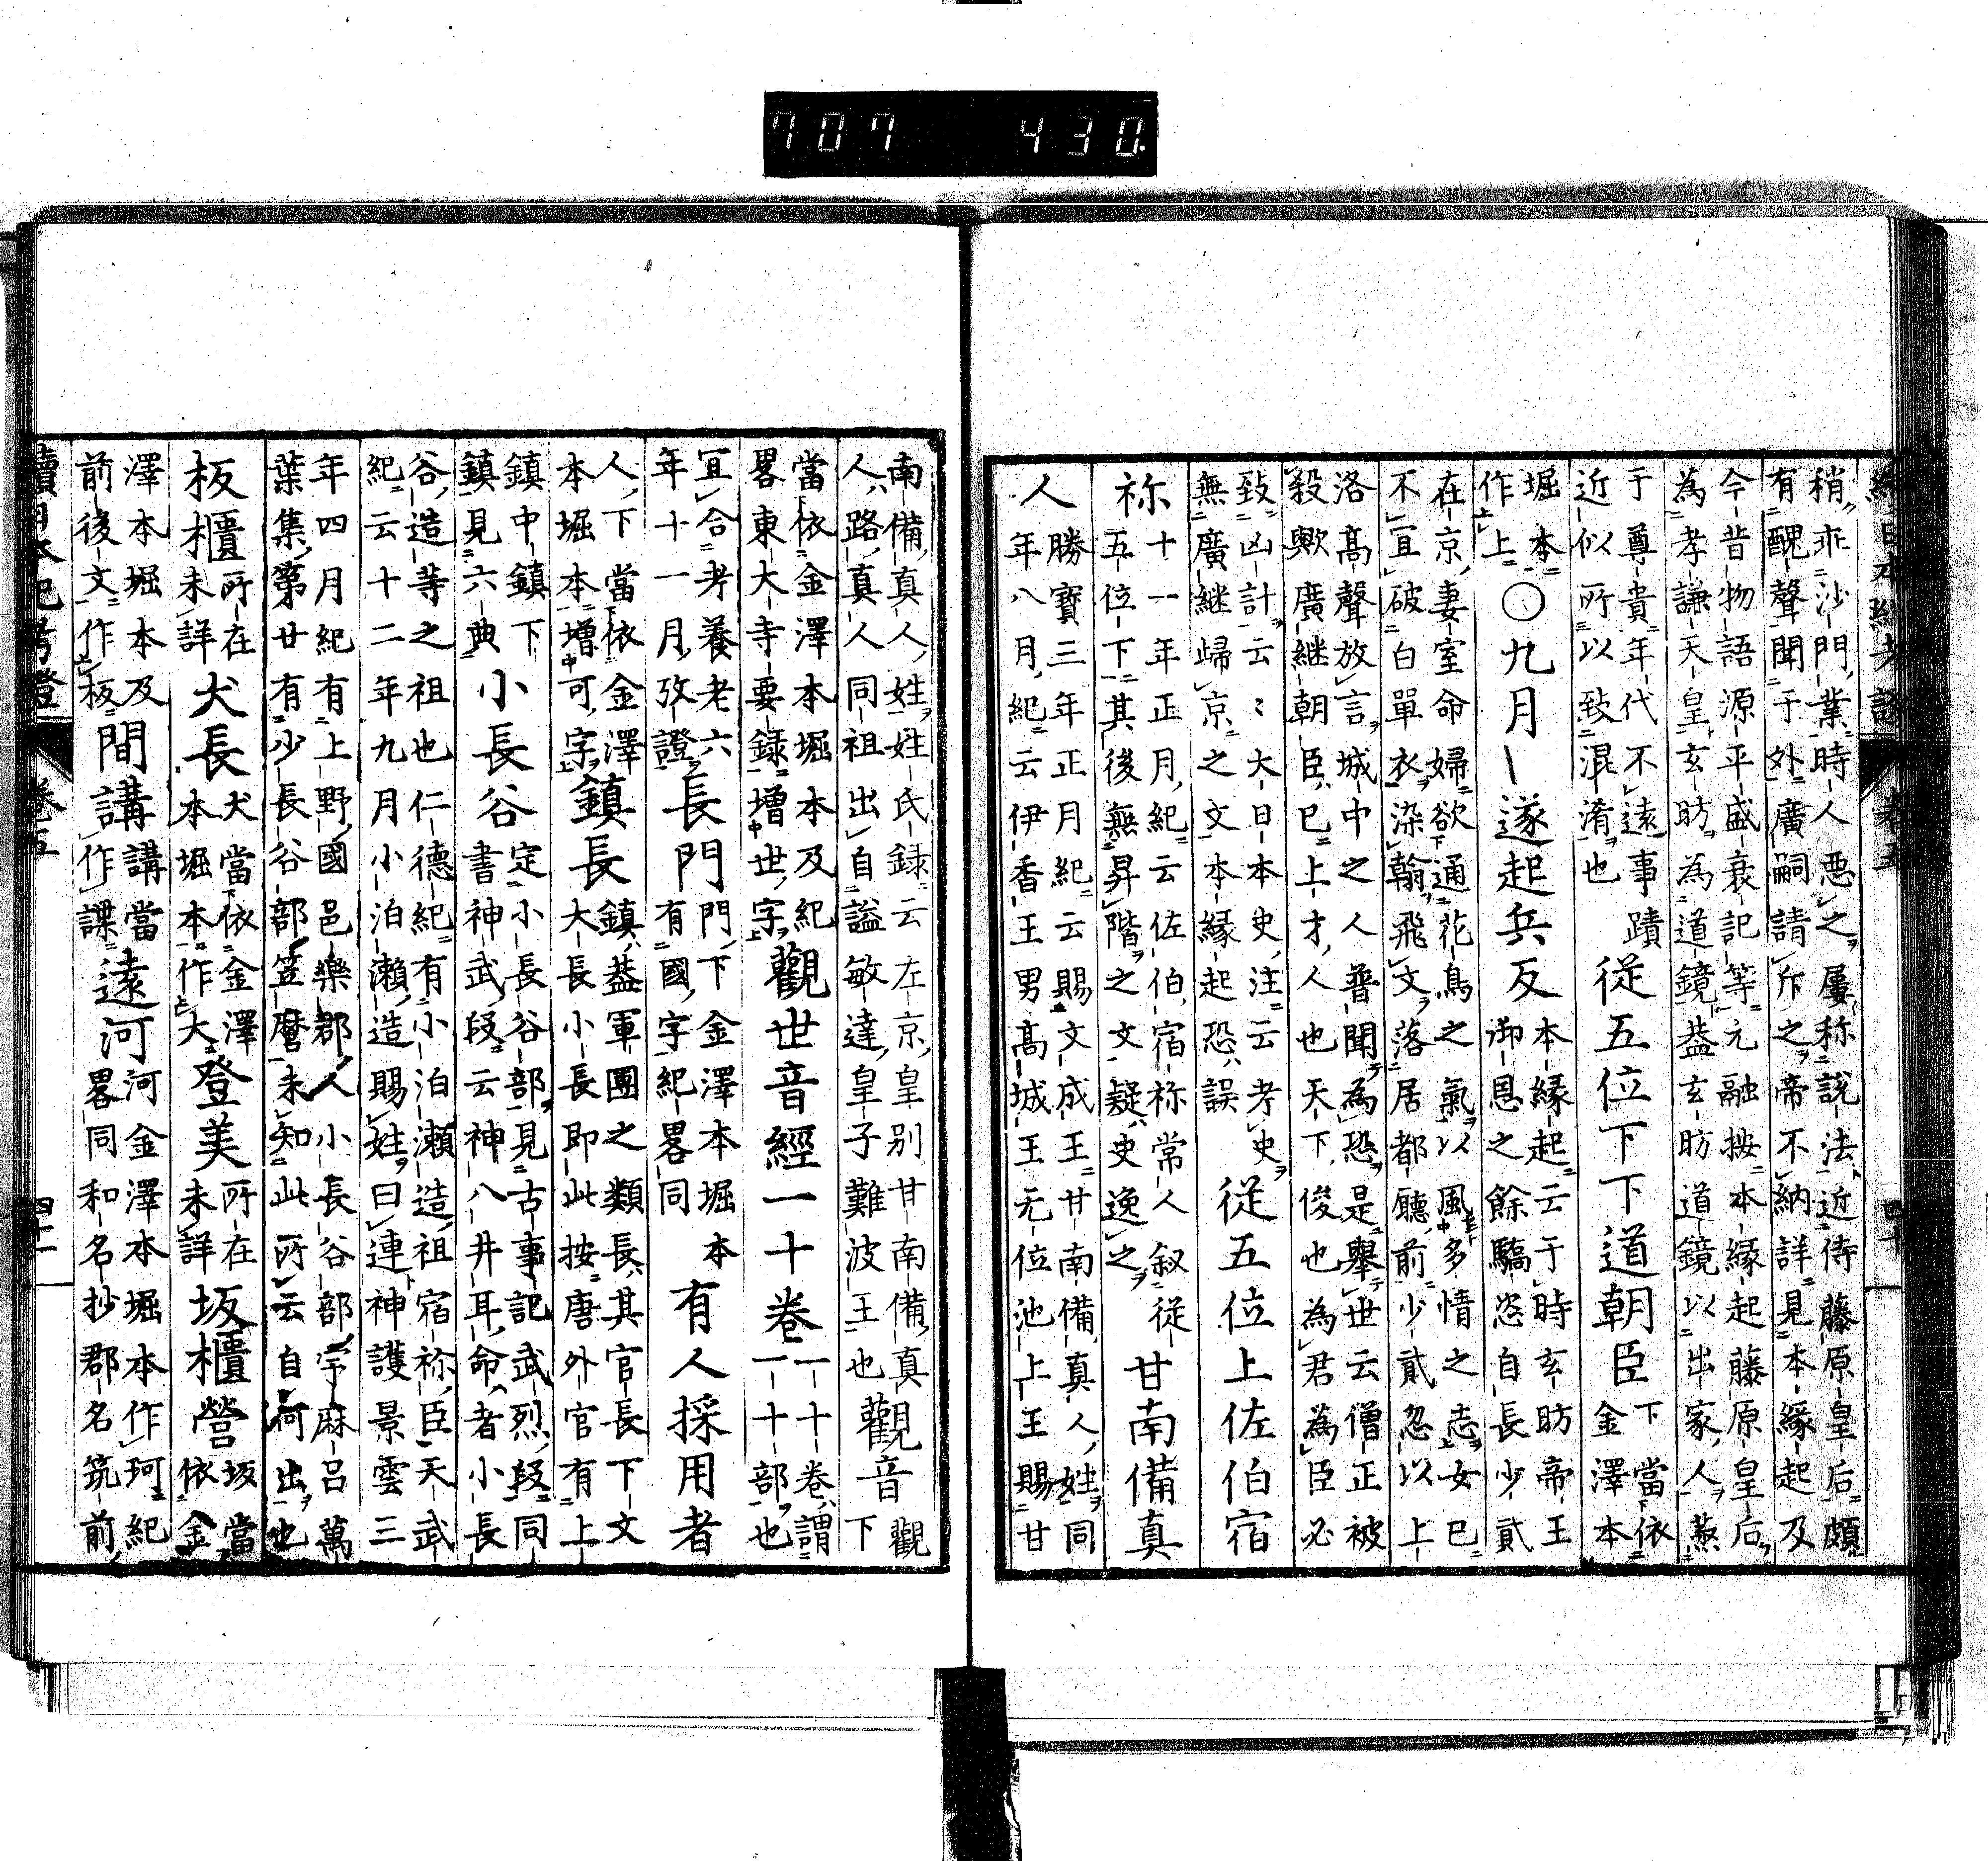 707 430
續日本紀考證 卷五 四十
稍乖沙門業時人惡之屢称說法近侍藤原皇后頗
有醜聲聞于外廣嗣請斥之帝不納詳見本緣起及
今昔物語源平盛衰記等元融按本緣起藤原皇后
為孝謙天皇玄昉為道鏡蓋玄昉道鏡以出家人烝
于尊貴年代不遠事蹟
近似所以致混淆也
從五位下下道朝臣
下當依
金澤本
堀本
作上
〇九月―遂起兵反
本緣起云于時玄昉帝王
御恩之餘驕恣自長少貳
在京妻室命婦欲通花鳥之氣以風多情之志女已
不宜破白單衣染翰飛文落居都廳前少貳忽以上
洛高聲放言城中之人普聞為恐是舉世云僧正被
殺歟廣継朝臣已上才人也天下俊也為君為臣必
致凶計云〻大日本史注云考史
無廣継歸京之文本緣起恐誤
從五位上佐伯宿
祢
十一年正月紀云佐伯宿祢常人叙從
五位下其後無昇階之文疑史逸之
甘南備真
人
勝寶三年正月紀云賜文成王甘南備真人姓同
年八月紀云伊香王男高城王无位池上王賜甘
南備真人姓姓氏録云左京皇別甘南備真
人路真人同祖出自謚敏達皇子難波王也
觀音
觀
下
當依金澤本堀本及紀
畧東大寺要録増世字
觀世音經一十卷
一十卷謂
一十部也
宜合考養老六
年十一月攷證
長門
門下金澤本堀本
有國字紀畧同
有人採用者
人下當依金澤
本堀本増可字
鎮長
鎮蓋軍團之類長其官長下文
大長小長即此按唐外官有上
鎮中鎮下
鎮見六典
小長谷
定小長谷部見古事記武烈段同
書神武段云神八井耳命者小長
谷造等之祖也仁德紀有小泊瀬造祖宿祢臣天武
紀云十二年九月小泊瀬造賜姓曰連神護景雲三
年四月紀有上野國邑樂郡人小長谷部宇麻呂萬
葉集第廿有少長谷部笠麿未知此所云自何出也
板櫃
所在
未詳
犬長
犬當依金澤
本堀本作大
登美
所在
未詳
坂櫃營
坂當
依金
澤本堀本及
前後文作板
間講
講當
作諜
遠河
河金澤本堀本作珂紀
畧同和名抄郡名筑前
續日本紀考證 卷五 四十一